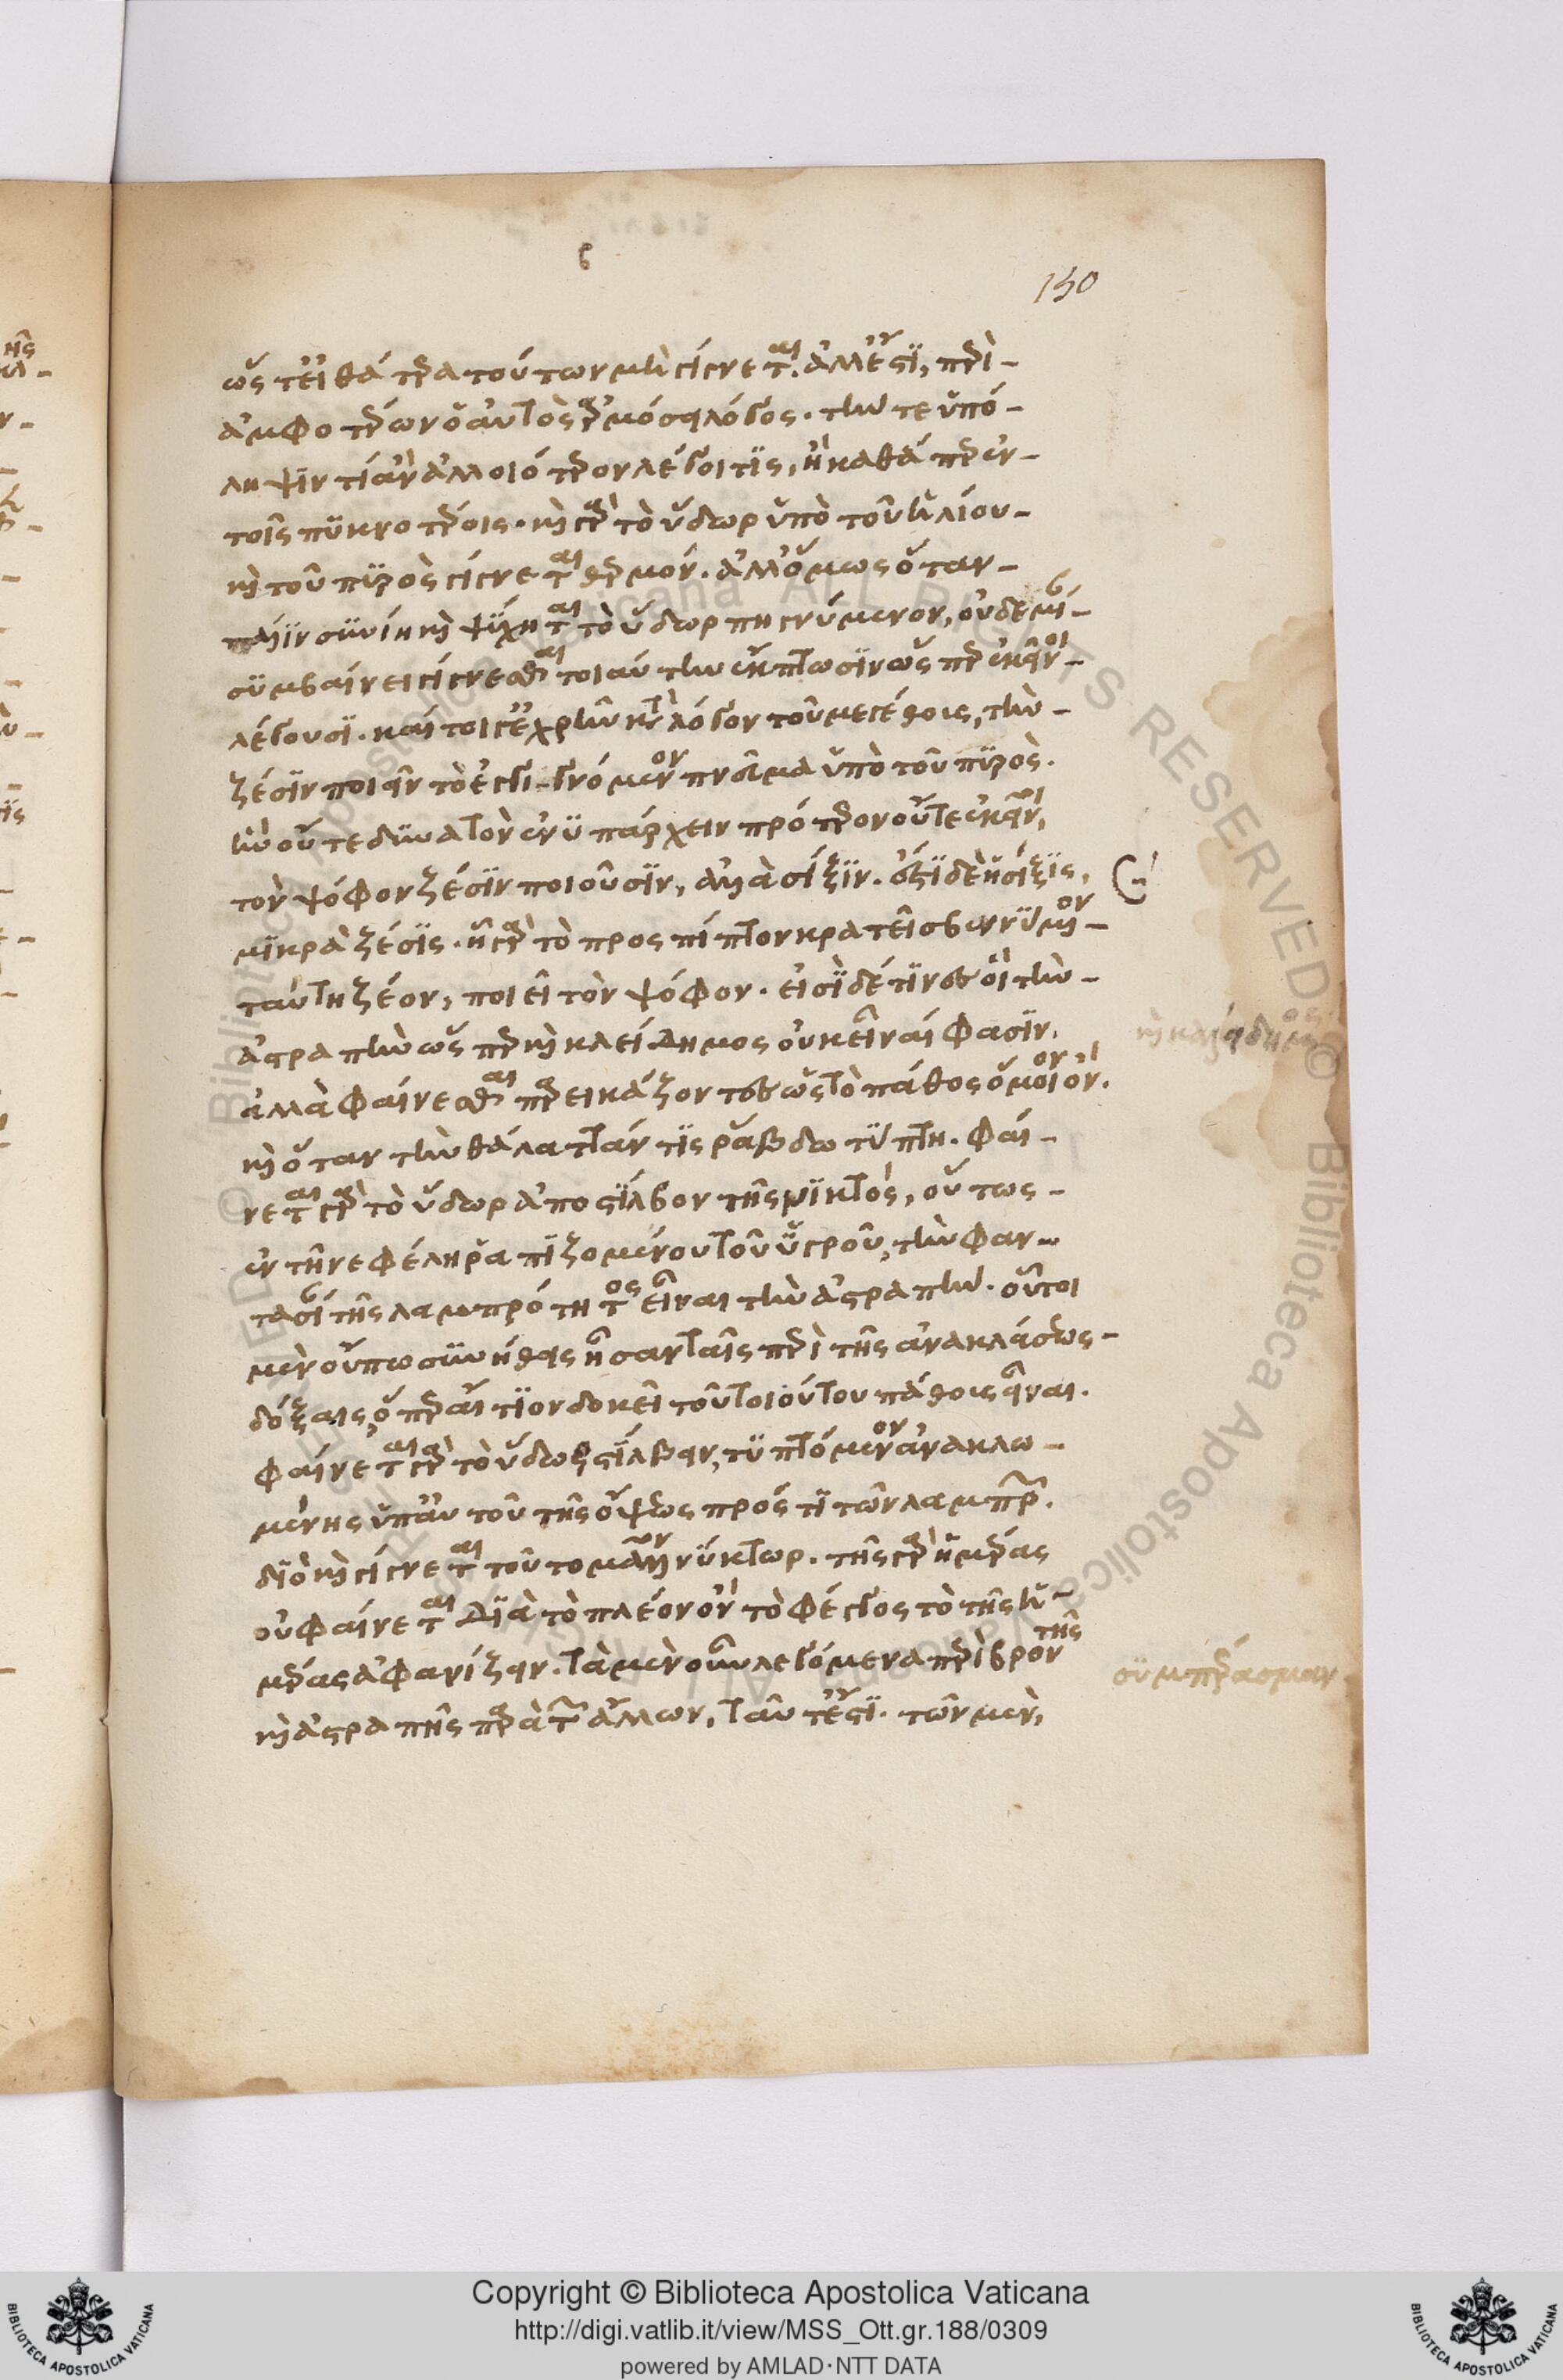 ϛ
150
ὥστ' εἰ θάτερα τούτων μὴ γίγνεται. ἀλλ' ἔστι, περὶ
ἀμφοτέρων ὁ αὐτὸς ἁρμόσει λόγος. τήν τε ὑπό-
ληψιν τί ἂν ἀλλοιότερον λέγοι τις, ἢ καθάπερ ἐν
τοῖς πυκνοτέροις. καὶ γὰρ τὸ ὕδωρ ὑπὸ τοῦ ἡλίου
καὶ τοῦ πυρὸς γίγνεται θερμόν. ἀλλ' ὅμως ὅταν
πάλιν συνίῃ καὶ ψύχηται τὸ ὕδωρ πηγνύμενον, οὐδεμίαν
συμβαίνει γίγνεσθαι τοιαύτην ἔκπτωσιν ὥσπερ ἐκεῖνοι
λέγουσι. καίτοι γ' ἐχρῆν κατὰ λόγον τοῦ μεγέθους, τὴν
ζέσιν ποιεῖν τὸ ἐγγινόμενον πνεῦμα ὑπὸ τοῦ πυρός.
ἣν οὔτε δυνατὸν ἐνυπάρχειν πρότερον οὔτε ἐκεῖνοι
τὸν ψόφον ζέσιν ποιοῦσιν, ἀλλὰ σίξιν. ἔστι δὲ ἡ σίξις,
μικρὰ ζέσις. ᾗ γὰρ τὸ προσπίπτον κρατεῖ σβεννύμενον
ταύτῃ ζέον, ποιεῖ τὸν ψόφον. εἰσὶ δέ τινες οἳ τὴν
ἀστραπὴν ὥσπερ καὶ Κλείδημος οὐκ εἶναί φασιν,
ἀλλὰ φαίνεσθαι παρεικάζοντες ὡς τὸ πάθος ὅμοιον ὄν.
καὶ ὅταν τὴν θάλατταν τις ῥάβδῳ τύπτῃ. φαί-
νεται γὰρ τὸ ὕδωρ ἀποστίλβον τῆς νυκτός, οὕτως
ἐν τῇ νεφέλῃ ῥαπιζομένου τοῦ ὑγροῦ, τὴν φαν-
τασίαν τῆς λαμπρότητος εἶναι τὴν ἀστραπήν. οὗτοι
μὲν οὔπω συνήθεις ἦσαν ταῖς περὶ τῆς ἀνακλάσεως
δόξαις, ὅπερ αἴτιον δοκεῖ τοῦ τοιούτου πάθους εἶναι.
φαίνεται γὰρ τὸ ὕδωρ στίλβειν, τυπτόμενον ἀνακλω-
μένης ὑπ' αὐτοῦ τῆς ὄψεως πρός τι τῶν λαμπρῶν.
διὸ καὶ γίγνεται τοῦτο μᾶλλον νύκτωρ. τῆς γὰρ ἡμέρας
οὐ φαίνεται διὰ τὸ πλέον ὂν τὸ φέγγος τὸ τῆς ἡ-
μέρας ἀφανίζειν. τὰ μὲν οὖν λεγόμενα περὶ βροντῆς
καὶ ἀστραπῆς παρὰ τῶν ἄλλων, ταῦτ' ἐστί. τῶν μὲν,
συμπέρασμα